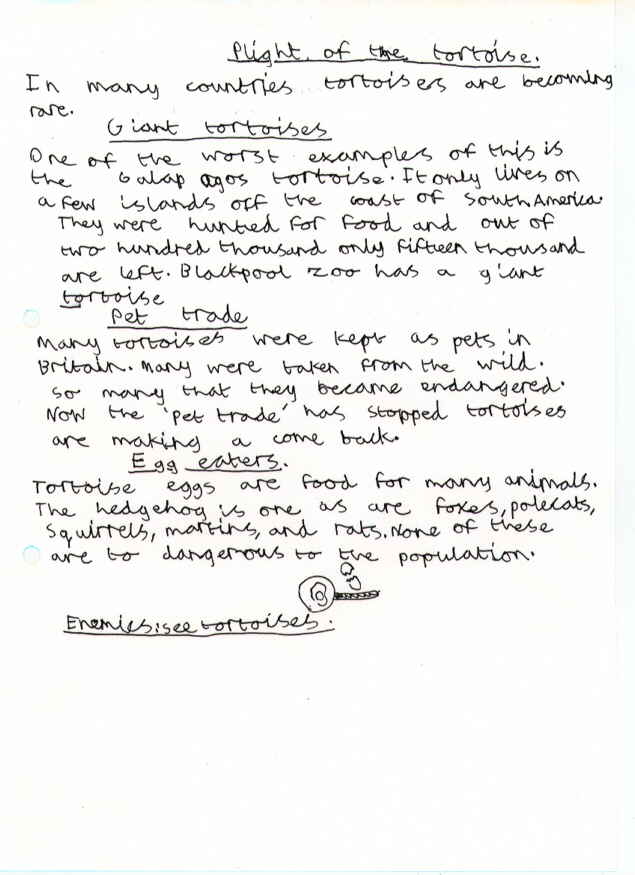 Plight of the tortoise.
In many countries tortoisers are becoming
rare.
Giant tortoises
One of the worst examples of this is
the Galap agos tortoise. It only lives on
a few islands off the coast of South America.
They were hunted for food and out of
two hundred thousand only fifteen thousand
are left. Blackpool zoo has a giant
tortoise
Pet trade
Many tortoises were kept as pets in
Britain. Many were taken from the wild.
So many that they became endangered.
Now the 'pet trade' has stopped tortoises
are making a come back.
Egg eaters.
Tortoise eggs are food for many animals.
The hedgehog is one as are foxes, polecats,
squirrels, martins, and rats. None of these
are to dangerous to the population.
Enemies: see tortoises.